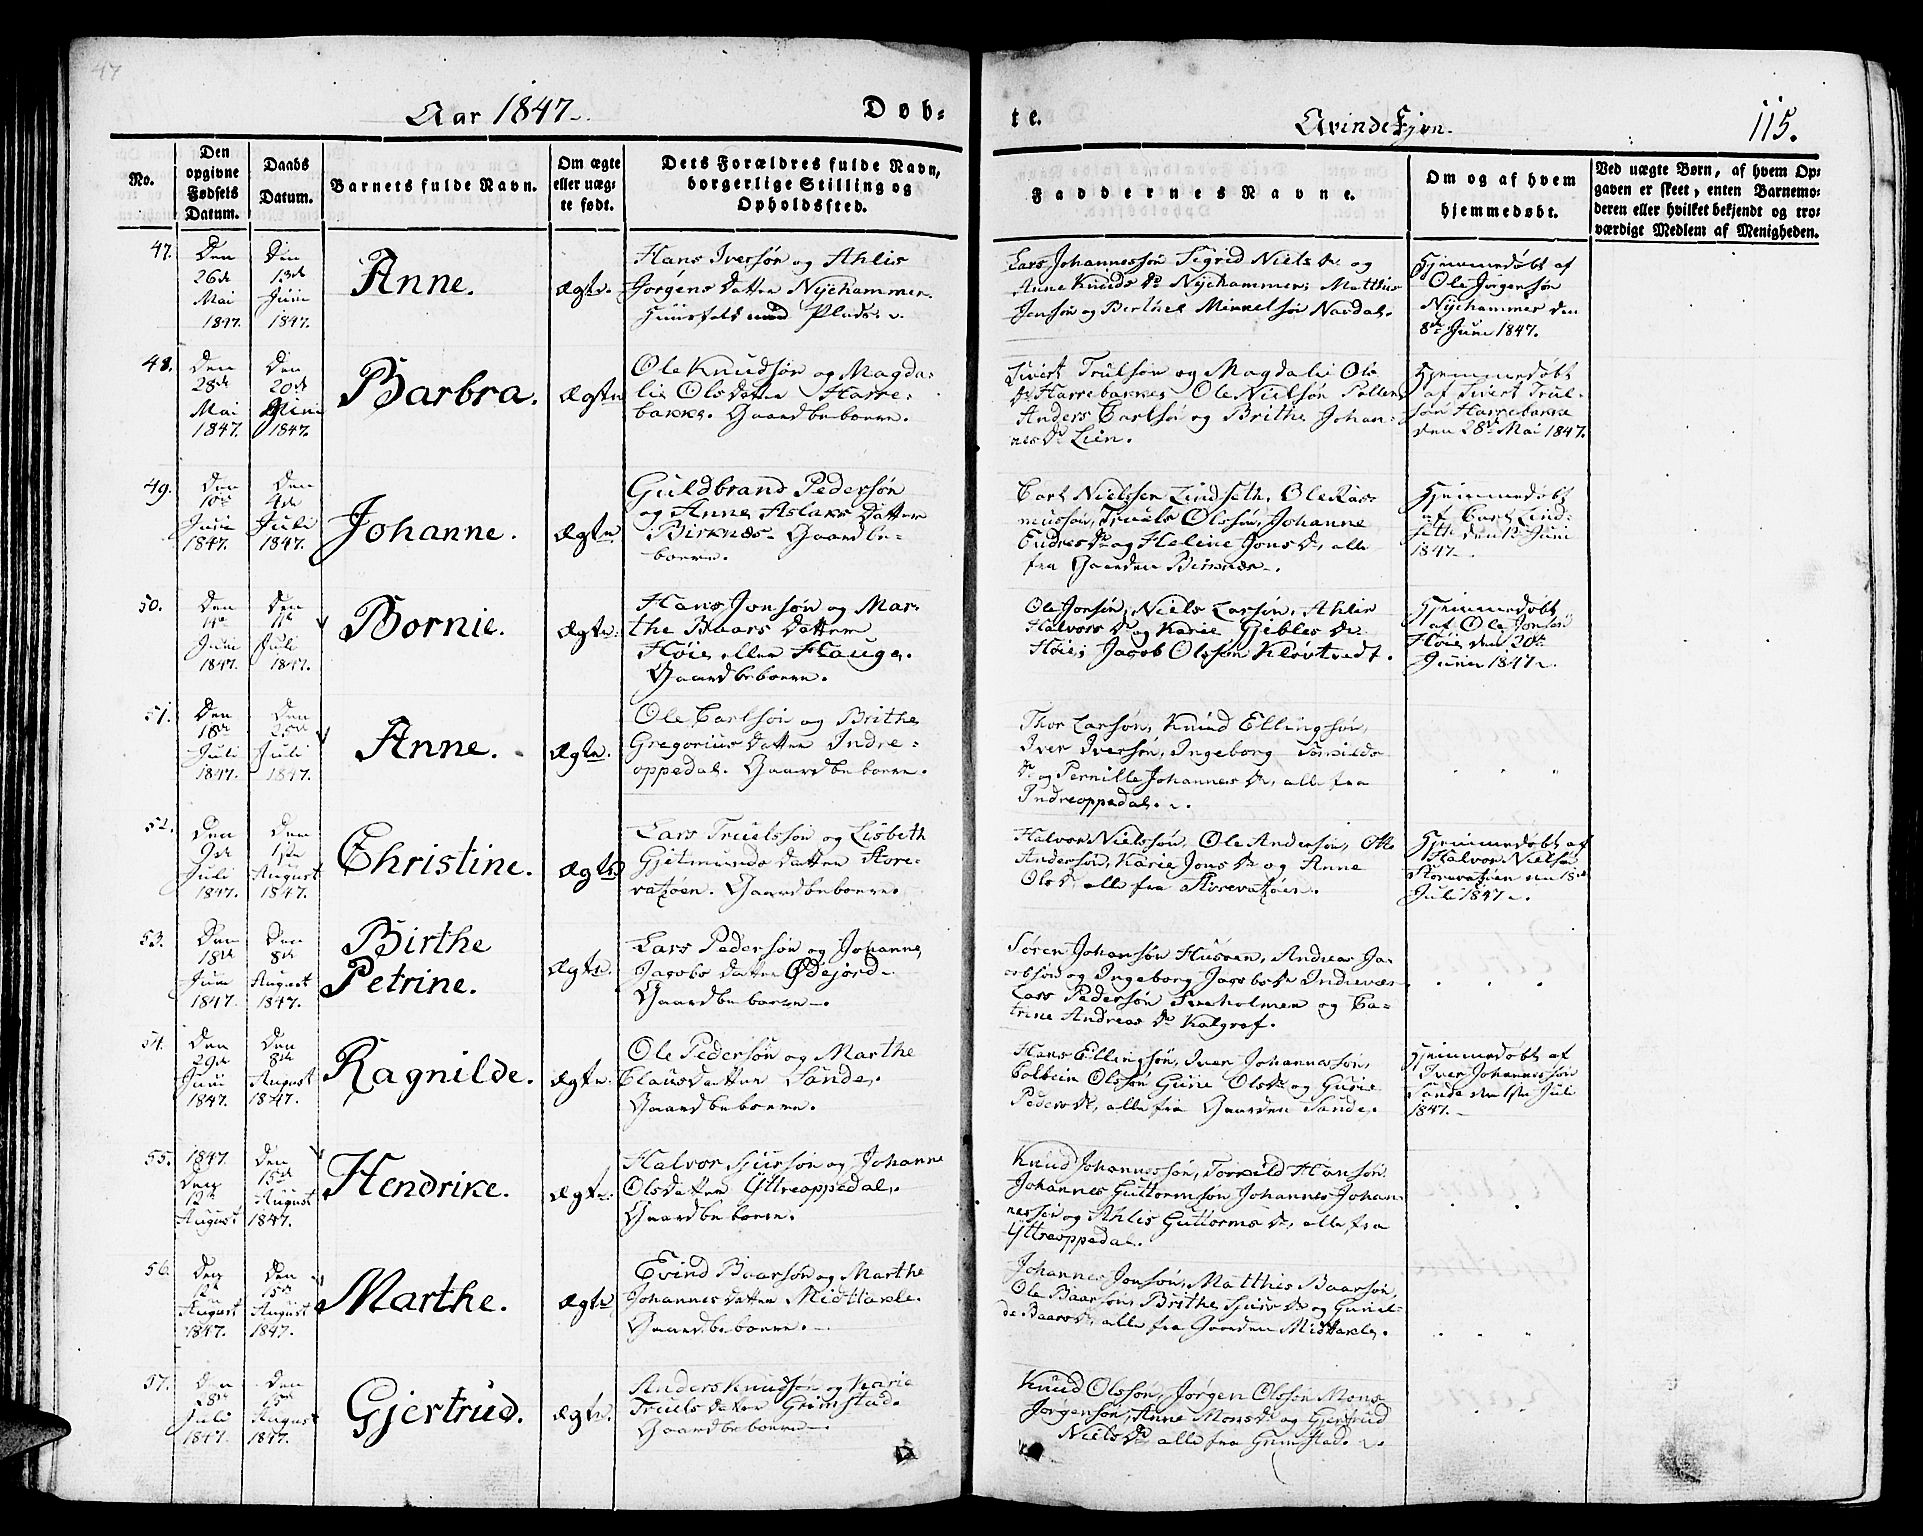 47
Aar 1847.
Døb-
te.
Qvindekjøn.
115.
No.
Den opgivne Fødsels Datum.
Daabs Datum.
Barnets fulde Navn.
Om ægte eller uæg-te født.
Dets Forældres fulde Navn, borgerlige Stilling og Opholdssted.
Faddernes Navne.
Om og af hvem hjemmedøbt.
Ved uægte Børn, af hvem Op-gaven er skeet, enten Barnemo-deren eller hvilket bekjendt og tro-værdigt Medlem af Menigheden.
47.
Den 26de Mai 1847.
Den 13de Juni 1847.
Anne.
Ægte.
Hans Iversøn og Ahlis
Jørgensdatter Nyehammer.
Huusfolk med Plads.
Lars Johannessøn Sigrid Niels Dr og
Anne Knuds Dr Nyehammer; Matthis
Jensøn og Berthel Mikkelsøn Navdal.
Hjemmedøbt af
Ole Jørgensøn
Nyehammer den
8de Juni 1847.
48.
Den 28de Mai 1847.
Den 20de Juni 1847.
Barbra.
Ægte
Ole Knudsøn og Magda-
lie Olsdatter Harre-
bakke. Gaardbeboere.
Sivert Trulsøn og Magdali Ols
Dr Harrebakke, Ole Nielsøn Pollen
Anders Carlsøn og Brithe Johan-
nes Dr Lien.
Hjemmedøbt
af Sivert Trul-
søn Harrebakke
den 28de Mai 1847.
49.
Den 10de Juni 1847.
Den 4de Juli 1847.
Johanne.
Ægte
Guldbrand Pedersøn
og Anne Aslaks Datter
Birknæs. Gaardbe-
boere.
Carl Nielssen Lindseth, Ole Ras-
mussøn, Truels Olssøn, Johanne
Endres Dr og Heline Jons Dr, alle
fra Gaarden Birknæs.
Hjemmedøbt
af Carl Lind-
seth den 12 Juni
1847.
50.
Den Juni 1847.
Den 11te Juli 1847.
Bornie.
Ægte.
Hans Jonsøn og Mar-
the Baars Datter
Høie eller Hauge.
Gaardbeboere.
Ole Jonsøn, Niels Larsøn, Ahlis
Halvors Dr og Karie Gjibles Dr
Høie; Jacob Olssøn Kløvtvedt.
Hjemmedøbt
af Ole Jonsøn
Høie den 20de
Juni 1847.
51.
Den 18de Juli 1847.
Den 25de Juli 1847.
Anne.
Ægte.
Ole Carlsøn og Brithe
Gregoriusdatter Indre-
oppedal. Gaardbeboere.
Thor Larsøn, Knud Ellingsøn,
Iver Iversøn, Ingeborg Torkilds
Dr og Pernille Johannes Dr, alle fra
Indreoppedal.
52.
Den 9de Juli 1847.
Den 1ste August 1847.
Christine.
Ægte
Lars Truelssøn og Lisbeth
Gjetmunds datter Store-
vatzøen. Gaardbeboere.
Halvor Nielssøn, Ole Andersøn, Ole
Andersøn, Karie Jons Dr og Anne
Ols Dr, alle fra Storevatzøen.
Hjemmedøbt af
Halvor Nielsøn
Storevatzøen den 18de
Juli 1847.
53.
Den 18de Juni 1847.
Den 8de August 1847.
Birthe
Petrine.
Ægte.
Lars Pedersøn og Johanne
Jacobs datter Ødejord
Gaardbeboere.
Søren Johansøn Huusen, Andreas Ja-
cobsøn og Ingeborg Jacobs Dr Indrevær
Lars Pedersøn Sveholmen og Ca-
trine Andreas Dr Kalgraf.
54.
Den 29de Juni 1847.
Den 8de August 1847.
Ragnilde.
Ægte.
Ole Pedersøn og Marthe
Clausdatter Sande.
Gaardbeboere.
Hans Ellingsøn, Iver Johannessøn,
Colbein Olssøn Gurie Ols Dr og Gurie
Peders Dr, alle fra Gaarden Sande.
Hjemmedøbt af
Iver Johannessøn
Sande den 1ste Juli
1847.
55.
1847. Den 12te August
Den 15de August 1847.
Hendrike.
Ægte.
Halvor Sjursøn og Johanne
Olsdatter Yttreoppedal.
Gaardbeboere.
Knud Johannessøn, Torkild Hansøn
Johannes Guttormsøn Johannes Johan-
nessøn og Ahlis Guttorms Dr, alle fra
Yttreoppedal.
56.
Den 12te August 1847.
Den 15de August 1847.
Marthe.
Ægte
Evind Baarsøn og Marthe
Johannes datter Midttakle.
Gaardbeboere.
Johannes Jonsøn, Matthis Baarsøn,
Ole Baarsøn, Brithe Sjurs Dr og Gunil-
de Baars Dr, alle fra Gaarden Midttakle.
57.
Den 28de Juli 1847.
Den 15de August 1847.
Gjertrud.
Ægte.
Anders Knudsøn og Karie
Truelsdatter Grimstad.
Gaardbeboere.
Knud Olssøn, Jørgen Olssøn Mons
Jørgensøn, Anne Mons Dr og Gjertrud
Niels Dr, alle fra Grimstad.